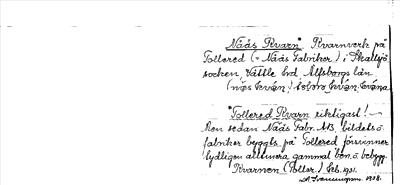 Nääs Kvarn". Kvarnverk på
Tollered (= Nääs Fabriker) i Skallsjö
socken Vättle hrd Älfsborgs län
(näs kvan
"Tollered Kvarn riktigast! –
Men sedan Nääs Fabr. AB. bildats o
fabriker byggts på Tollered försvinner
tydligen alltmera gammal ben. o bebygg.
Kvarnen (Toller.) Feb. 1931.
1938.